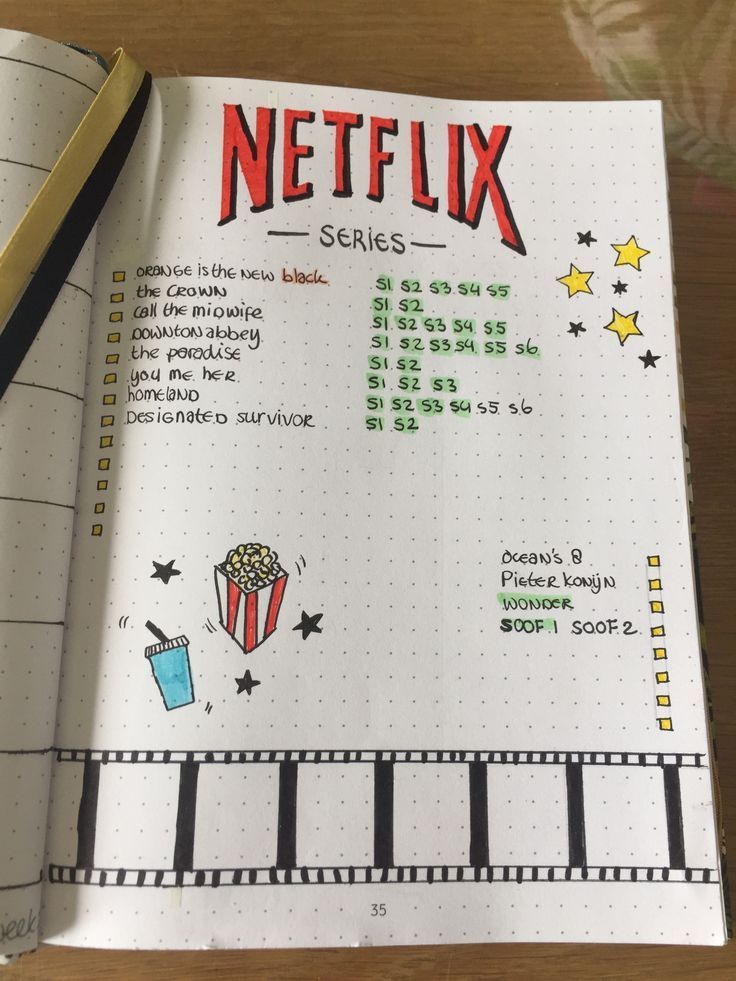 NETFLIX
— SERIES —
ORANGE is the NEW black S1 S2 S3 S4 S5
the CROWN S1 S2
call the midwife S1 S2 S3 S4 S5
DOWNTON abbey S1 S2 S3 S4 S5 S6
the paradise S1 S2
you me her S1 S2 S3
homeland S1 S2 S3 S4 S5 S6
DESIGNATED SURVIVOR S1 S2
OCEAN'S 8
PIETER KONIJN
WONDER
SOOF 1 SOOF 2
35
week